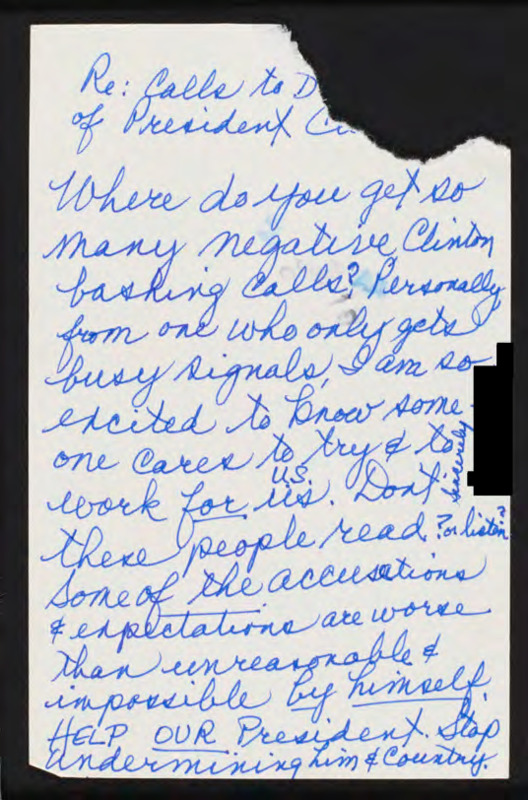 Re: Calls to D
of President C
Where do you get so
many negative Clinton
bashing calls? Personally
from one who only gets
busy signals, I am so
excited to know some-
one cares to try & to
work for U.S. us. Don't sincerely
these people read? or listen?
Some of the accusations
& expectations are worse
than unreasonable &
impossible by himself.
HELP OUR President. Stop
undermining him & Country.